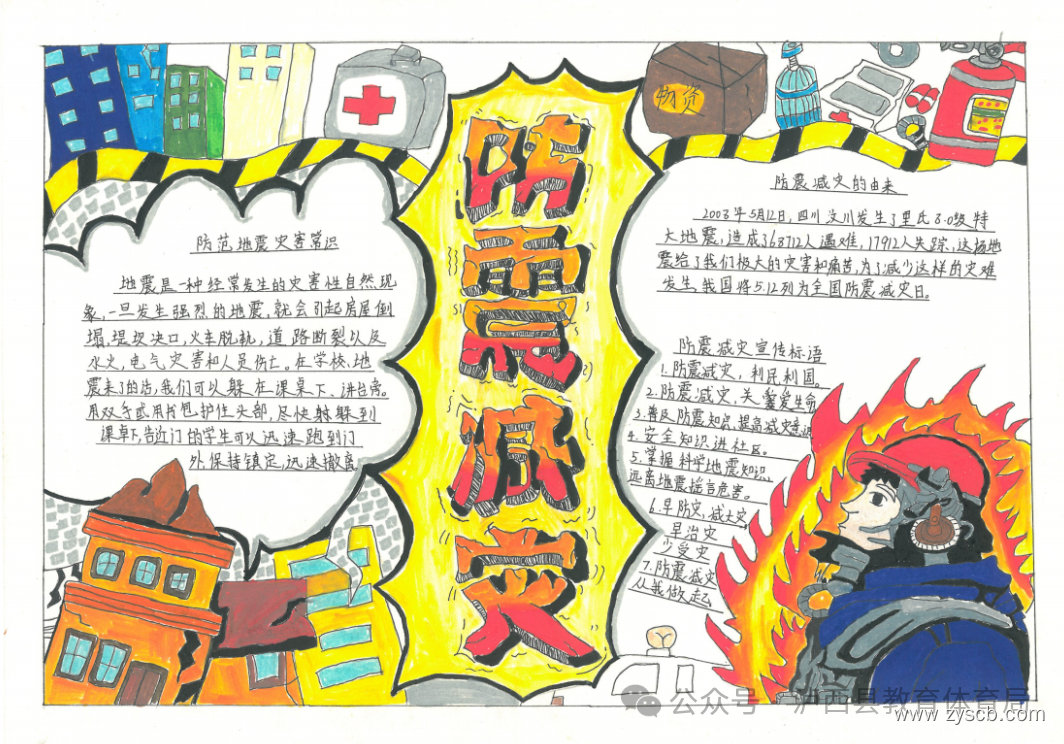 防震减灾
物资
防范地震灾害常识
地震是一种经常发生的灾害性自然现
象,一旦发生强烈的地震,就会引起房屋倒
塌,堤坝决口,火车脱轨,道路断裂以及
水火,电气灾害和人员伤亡。在学校,地
震来了的话,我们可以躲在课桌下、讲台旁。
用双手或用书包护住头部,尽快躲到
课桌下,告近门的学生可以迅速跑到门
外,保持镇定,迅速撤离
防震减灾的由来
2008年5月12日,四川汶川发生了里氏8.0级特
大地震,造成了68712人遇难,17912人失踪,这场地
震给了我们极大的灾害和痛苦,为了减少这样的灾难
发生,我国将5.12列为全国防震减灾日。
防震减灾宣传标语
1.防震减灾,利民利国。
2.防震减灾,关爱生命
3.普及防震知识,提高减灾意识
4.安全知识进社区。
5.掌握科学地震知识
远离地震谣言危害。
6.早防灾,减大灾,
早治灾
少受灾
7.防震减灾
从我做起
公众号 · 泸西县教育体育局
www.zyscb.com